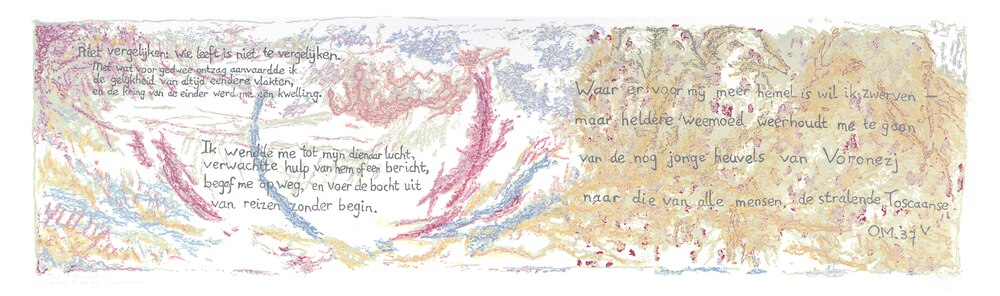 Niet vergelijken: wie leeft is niet te vergelijken.
Met wat voor gedwee ontzag aanvaardde ik
de gelijkheid van altijd eendere vlakten,
en de kring van de einder werd me een kwelling.
Ik wendde me tot mijn dienaar lucht,
verwachtte hulp van hem of een bericht,
begaf me op weg, en voer de bocht uit
van reizen zonder begin.
Waar er voor mij meer hemel is wil ik zwerven —
maar heldere weemoed weerhoudt me te gaan
van de nog jonge heuvels van Voronezj
naar die van alle mensen, de stralende Toscaanse
O.M. '37 V.